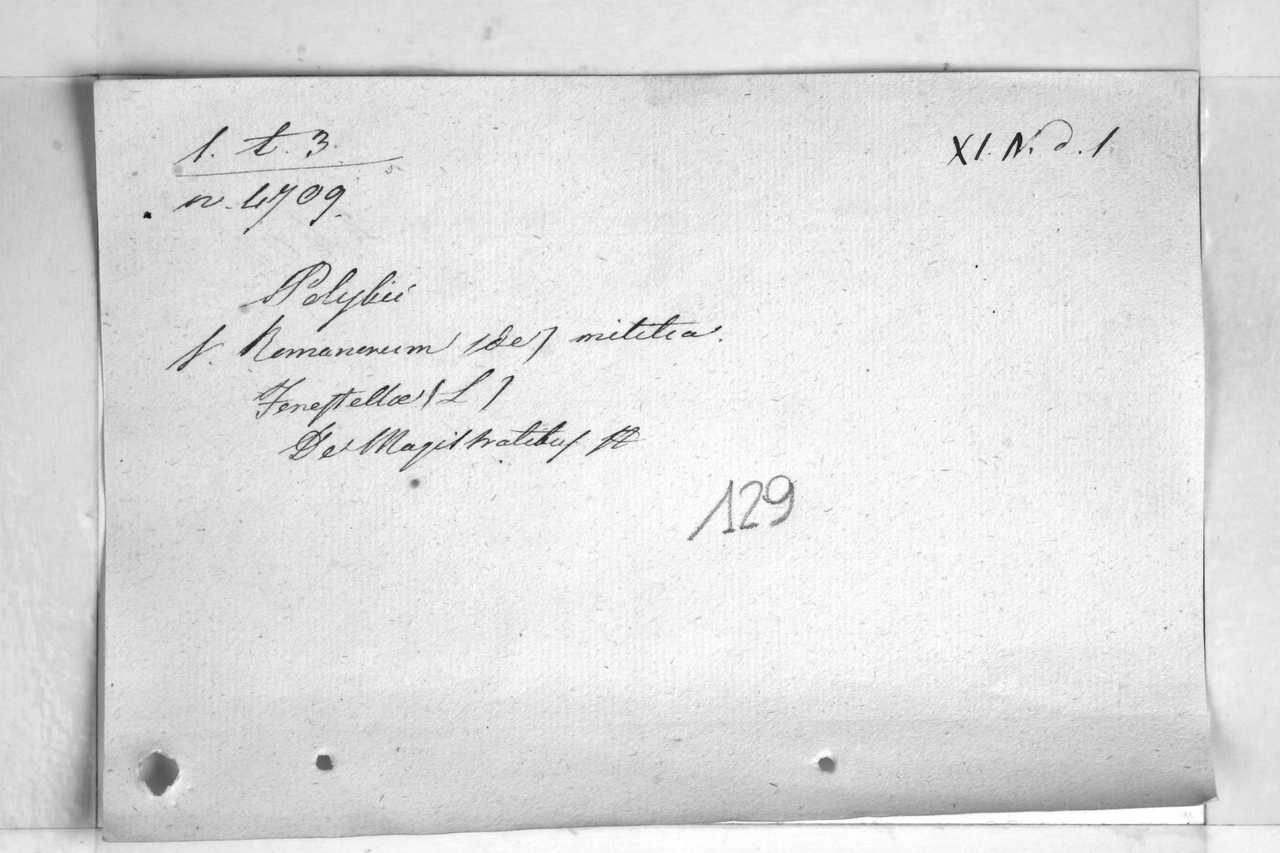 1. t. 3.
XI. N. d. 1
n. 4709.
Polybii
f. Romanorum (de) militia.
Fenestellae (L)
De Magistratibus
129